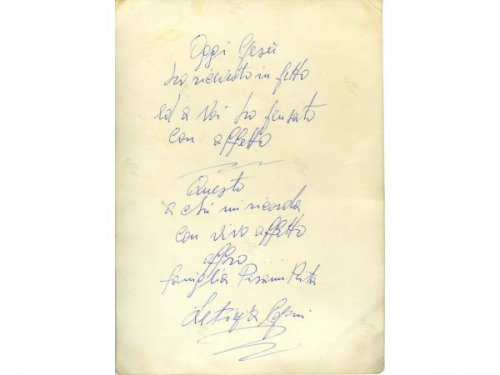 Oggi Gesù
ho ricevuto in petto
ed a Voi ho pensato
con affetto
Questo
a chi mi ricorda
con vivo affetto
offro
famiglia Pisani Rita
Letizia